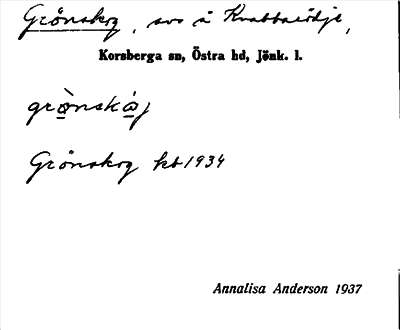 Grönskog, avs å Knabbarödje,
Korsberga sn, Östra hd, Jönk. l.
grö̀nskó̱g
Grönskog kb 1934
Annalisa Anderson 1937